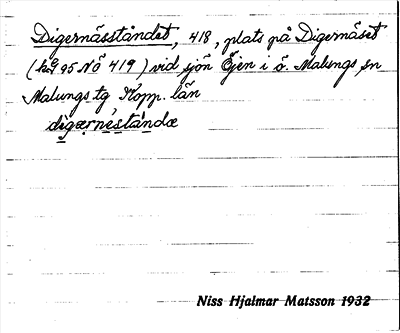 Digernäsståndet, 418, plats på Digernäset
(hg 95 NÖ 419) vid sjön Öjen i ö. Malungs sn
Malungs tg Kopp. län
digærnèståndæ
Niss Hjalmar Matsson 1932